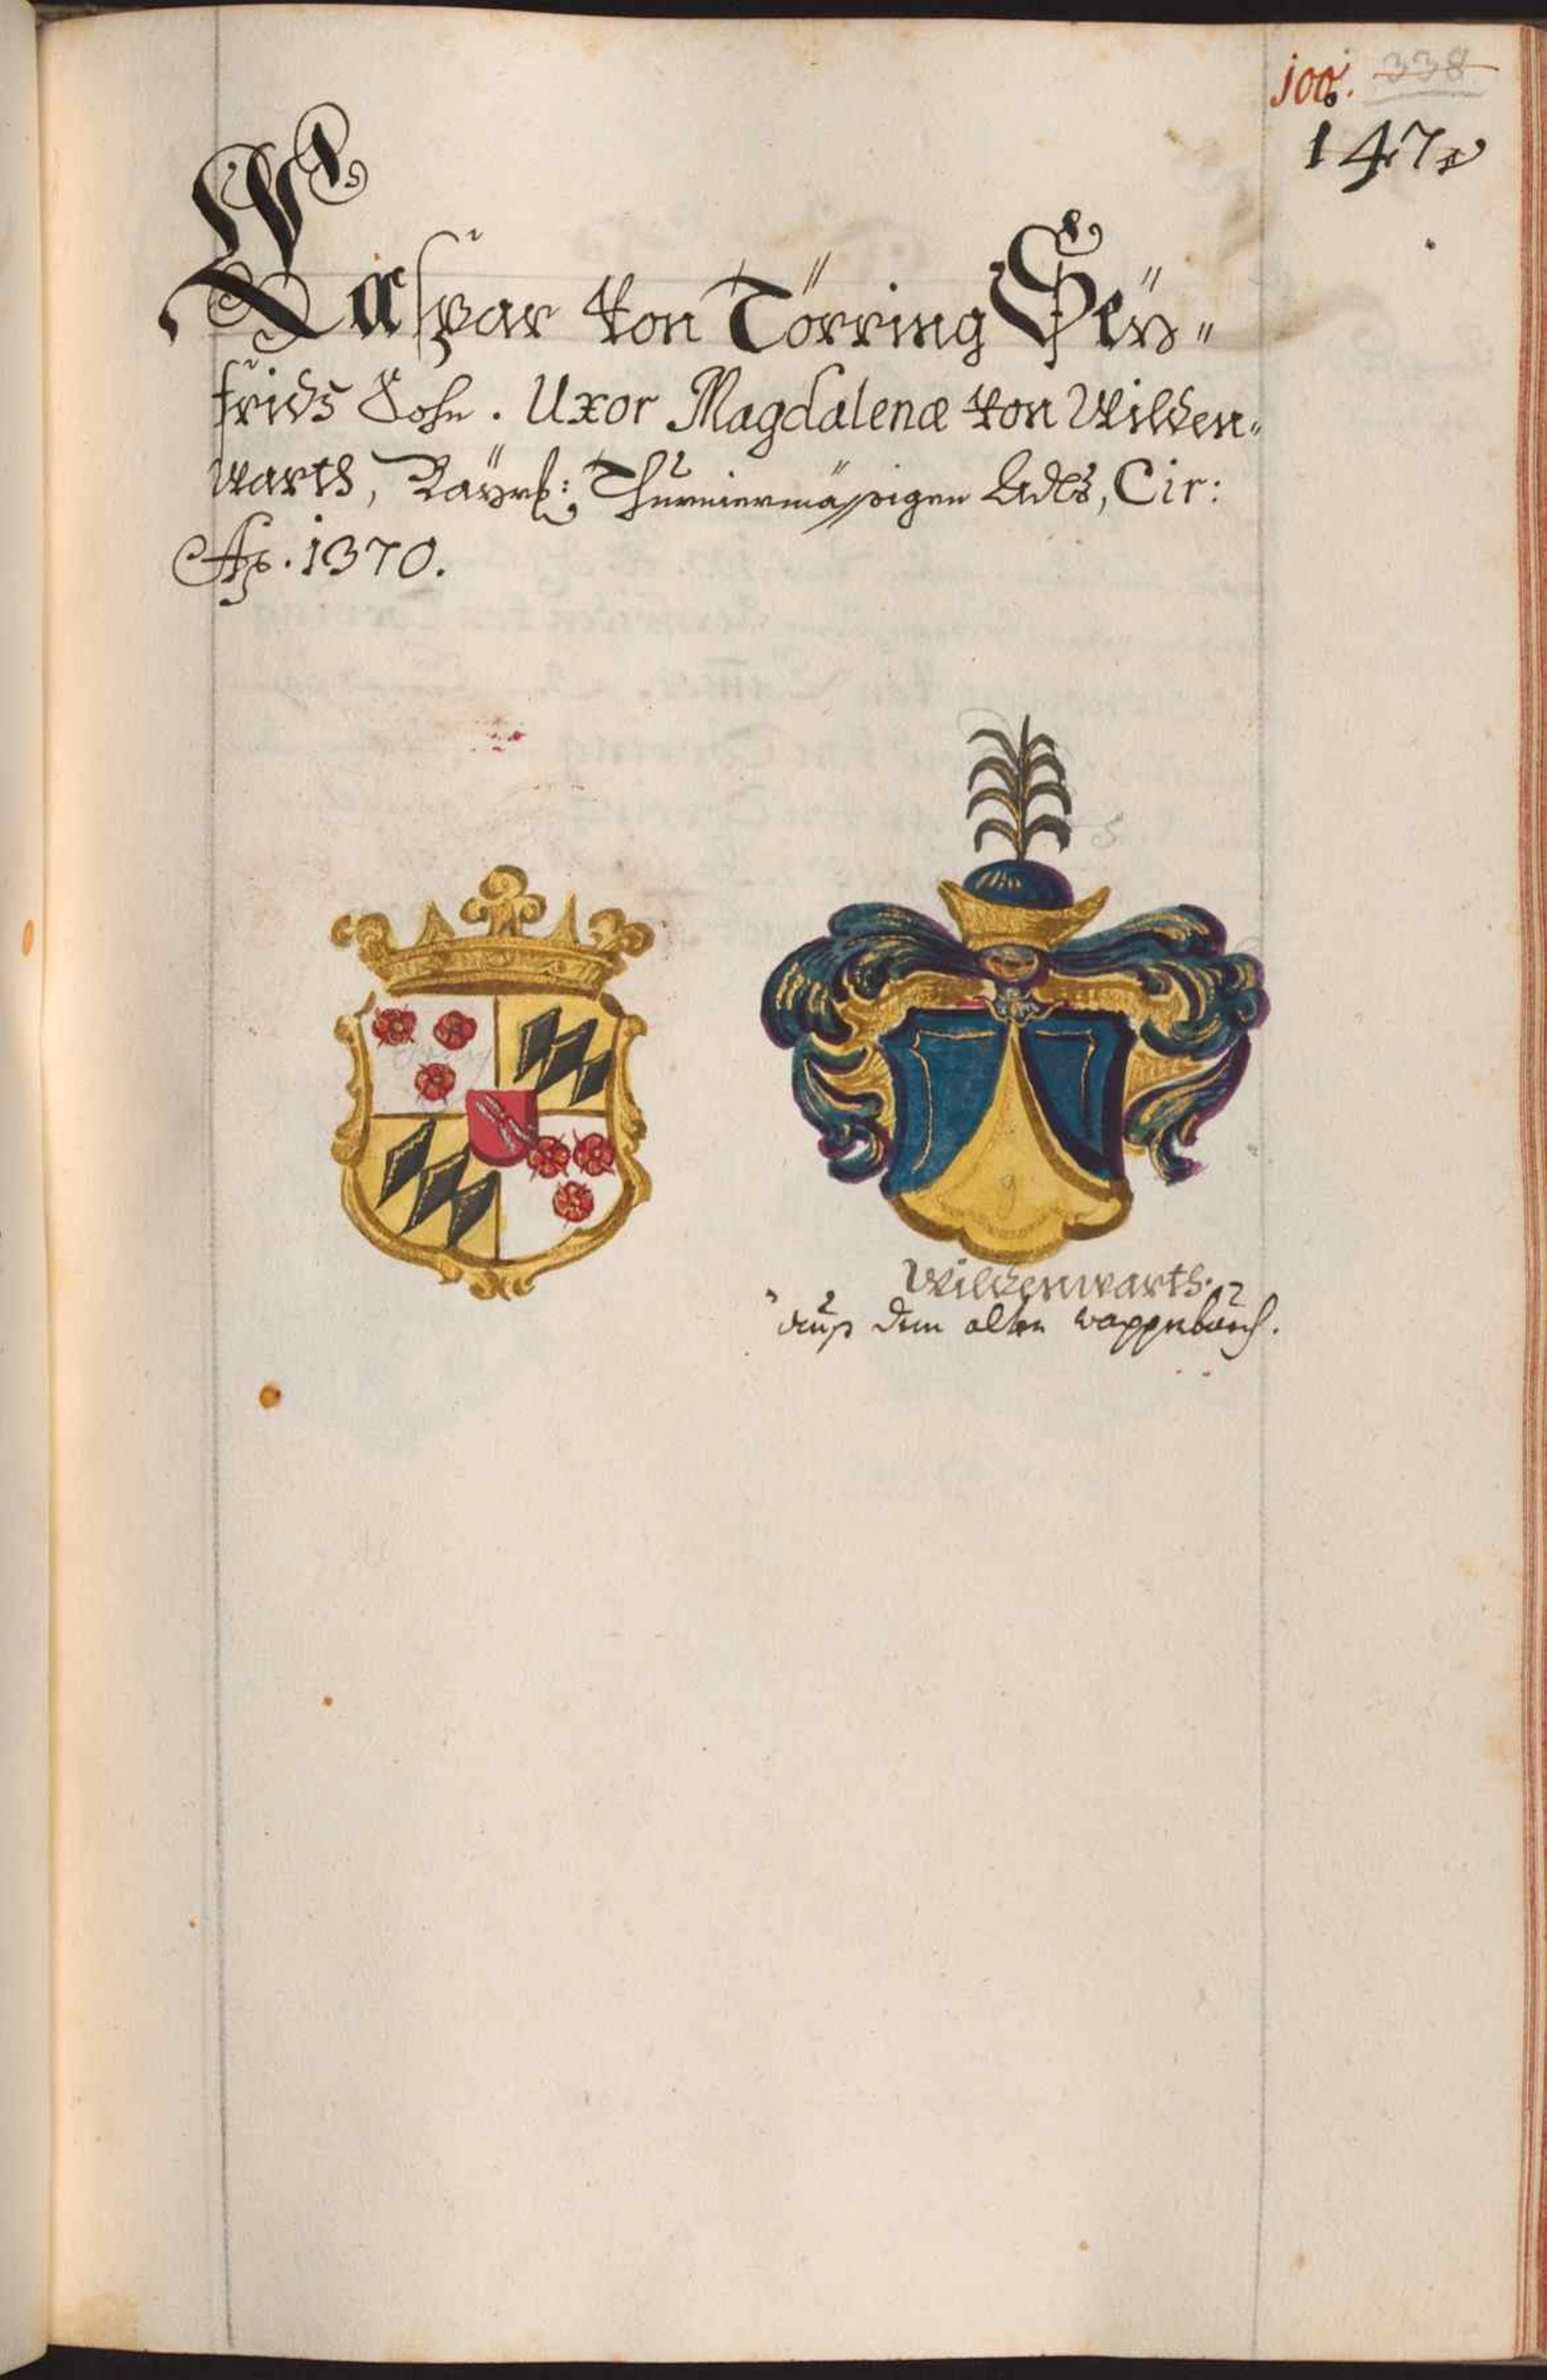 100. 338
147
Caspar von Törring Seÿ=
frids Sohn. Uxor Magdalena von Wilden=
warth, Baÿrl: Thurniermässigen Adls, Cir:
Aō. 1370.
Wildenwarth.
auß dem alten wappenbuch.